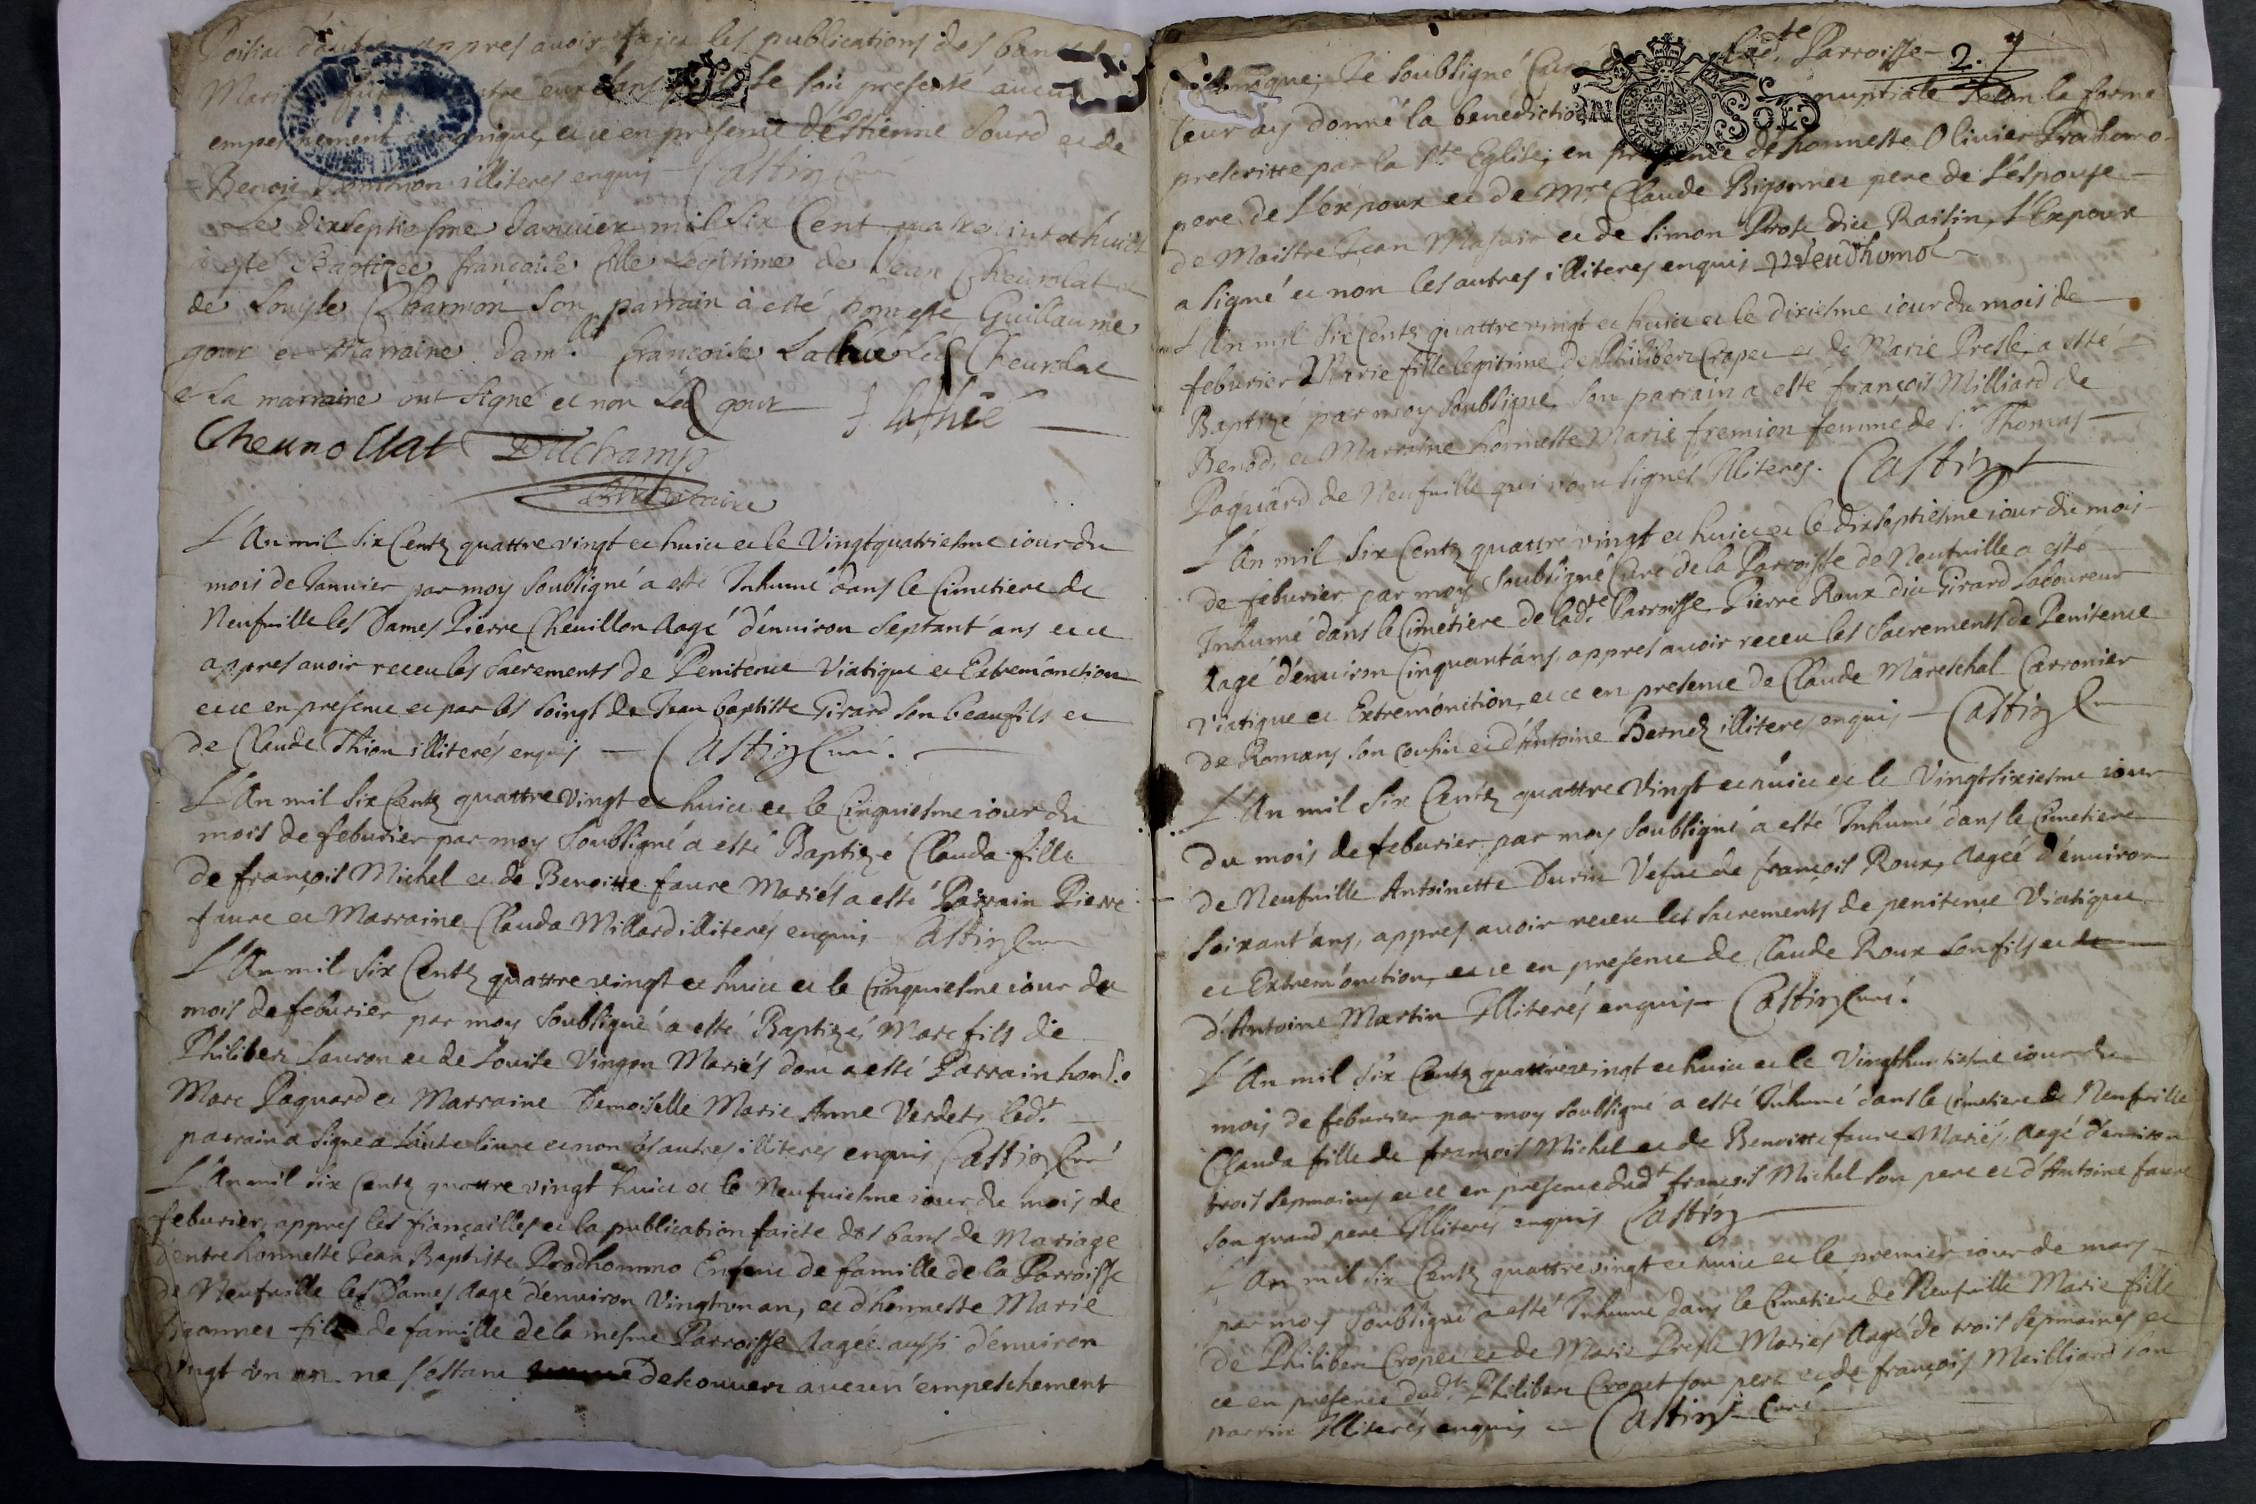 Poisiat d'autre appres avoir faict les publications des bans de
Mariage entre eux sans qu'il se soit presenté aucun
empeschement canonique, et ce en presence d'Estienne Sourd et de
Benoit illiteres enquis Castin Curé
Le dixseptiesme Janvier mil six Cent quatre vint et huict
à esté Baptizée francoise fille Legitime de Jean Cheurolat et
de Louyse Charmon son parrain à esté honneste Guillaume
gour et Marraine dam.lle francoise Lathuè Led Cheurolat
et La marraine ont signé et non Led gour f Lathuè
Cheurollat Duchamp
L'An mil six Centz quattre vingt et huict et le Vingtquatriesme iour du
mois de Janvier par moy soubsigné a esté Inhumé dans le Cimetiere de
Neufville les Dames Pierre Cheuillon Aagé d'enuiron septant'ans et ce
appres auoir receu les sacrements de Penitence Viatique et Extremonction
et ce en presence et par les soings de Jean baptiste Girard son beaufils et
de Claude Thion illiterés enquis — Castin Curé.
L'An mil six Centz quattre vingt et huict et le Cinquiesme iour du
mois de feburier par moy soubsigné a esté Baptizé Clauda fille
de françois Michel et de Benoitte faure Mariés a esté Parrain Pierre
faure et Marraine Clauda Millard illiterés enquis Castin Curé
L'An mil six Centz quattre vingt et huict et le Cinquiesme iour du
mois de feburier par moy soubsigné a esté Baptizé Marc fils de
Philibert Lauron et de Louise Vingon Mariés dont a esté Parrain hon.
Marc Paquard et Marraine Demoiselle Marie Anne Verdet, led.t
parrain a signé a liure et non les autres illiteres enquis Castin Curé
L'An mil six Centz quattre vingt huict et le Neufuiesme iour du mois de
feburier, appres les fiançailles et la publication faicte des bans de Mariage
d'entre honneste Jean Baptiste Prodhommo Enfant de famille de la Parroisse
de Neufville les Dames Aagé d'enuiron Vingtvn an, et d'honneste Marie
Bigonnet fille de famille de la mesme Parroisse Aagée aussi d'enuiron
vingt vn an. ne s'estant descouuert aucun empeschement
Canonique, Je soubsigné Curé de lad.te Parroisse — 2.
leur ay donné la benediction nuptiale selon la forme
prescritte par la S.te Eglise, en presence de honneste Olivier Prodhomo
pere de L'expoux et de M.re Claude Bigonnet pere de L'espouse
de Maistre Jean Majoir et de Simon Prost dict Raisin, L'Expoux
a signé et non les autres illiteres enquis Preudhomo
L'An mil six Centz quattre vingt et huict et le dixiesme iour du mois de
feburier Marie fille legitime de Philibert Cropet et de Marie Presle a esté
Baptizé par moy soubsigné son parrain a esté françois Milliard de
Benod, et Marraine honneste Marie fremion femme de S.r Thomas
Paquard de Neufville qui n'ont signés Illiteres. Castin
L'An mil six Centz quattre vingt et huict et le dixseptiesme iour du mois
de feburier par moy soubsigné Curé de la Parroisse de Neufville a esté
Inhumé dans le Cimetiere de lad.te Parroisse Pierre Roux dict Girard Laboureur
Aagé d'enuiron Cinquant'ans, appres auoir receu les sacrements de Penitence
Viatique et Extremonction, et ce en presence de Claude Mareschal Carronier
de Romans son cousin et d'Antoine Bernez illiteres enquis — Castin Curé
L'An mil six Centz quattre Vingt et huict et le Vingtsixiesme iour
du mois de feburier par moy soubsigné a esté Inhumé dans le Cimetiere
de Neufville Antoinette Durin Vefue de françois Roux, Aagée d'enuiron
soixant'ans, appres auoir receu les sacrements de penitence Viatique
et Extrem'onction, et ce en presence de Claude Roux son fils et de
d'Antoine Martin Illiterés enquis — Castin Curé.
L'An mil six Centz quattre vingt et huict et le Vingthuictiesme iour du
mois de feburier par moy soubsigné a esté Inhumé dans le Cimetiere de Neufville
Clauda fille de françois Michel et de Benoitte faure Mariés, Aagé d'enuiron
trois sepmaines et ce en presence dud.t françois Michel son pere et d'Antoine faure
son grand pere Illiterés enquis Castin
L'An mil six Centz quattre vingt et huict et le premier iour de mars
par moy soubsigné a esté Inhumé dans le Cimetiere de Neufville Marie fille
de Philibert Cropet et de Marie Presle Mariés Aagé de trois sepmaines et
ce en presence dud.t Philibert Cropet son pere et de françois Meilliard son
parrin Illiterés enquis — Castin Curé